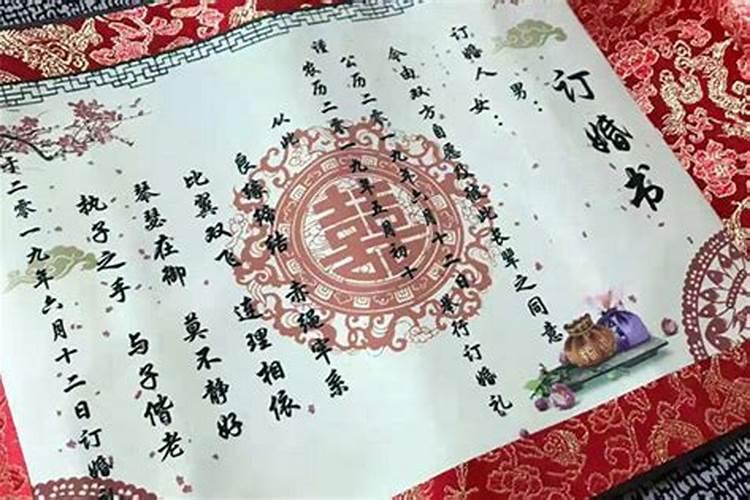 订婚书
男：
订婚人 女：
今由双方自愿及彼此长辈之同意
公历二零一九年六月十二日举行订婚礼
谨农历二零一九年五月初十
从此 赤绳牢系
良缘缔结 连理相依
比翼双飞 莫不静好
琴瑟在御 与子偕老
执子之手
于二零一九年六月十二日订婚